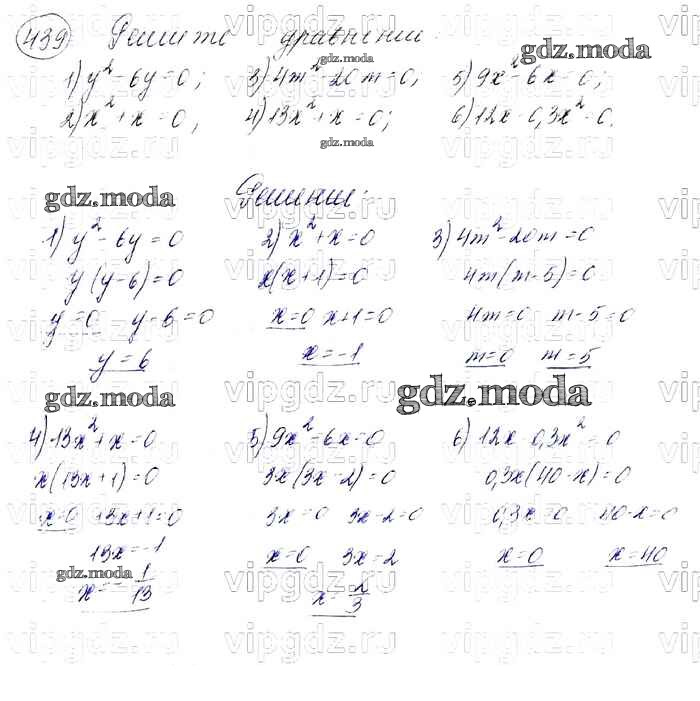 439 Решите уравнения:
gdz.moda
1) y² - 6y = 0; 3) 4m² - 20m = 0; 5) 9x² - 6x = 0;
gdz.moda
2) x² + x = 0; 4) 13x² + x = 0; 6) 12x - 0,3x² = 0.
gdz.moda
gdz.moda
Решение:
1) y² - 6y = 0 2) x² + x = 0 3) 4m² - 20m = 0
y(y-6)=0 x(x+1)=0 4m(m-5)=0
y=0 y-6=0 x=0 x+1=0 4m=0 m-5=0
y=6 x=-1 m=0 m=5
gdz.moda gdz.moda
4) 13x² + x = 0 5) 9x² - 6x = 0 6) 12x - 0,3x² = 0
x(13x+1)=0 3x(3x-2)=0 0,3x(40-x)=0
x=0 13x+1=0 3x=0 3x-2=0 0,3x=0 40-x=0
13x=-1 x=0 3x=2 x=0 x=40
gdz.moda
x=-1/13 x=2/3
vipgdz.ru